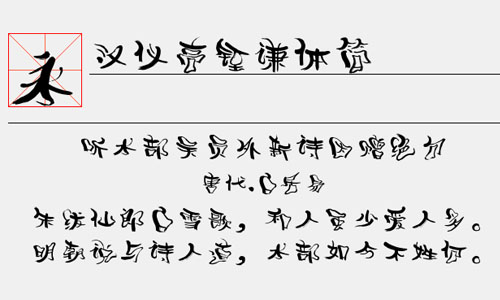 永
汉仪亮铨谦体简
听水部吴员外新诗因赠绝句
唐代.白居易
朱绂仙郎白雪歌，和人虽少爱人多。
明朝说与诗人道，水部如今不姓何。